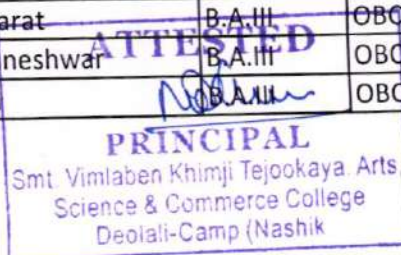 arat B.A.III OBC
neshwar B.A.III OBC
B.A.III OBC
ATTESTED
PRINCIPAL
Smt. Vimlaben Khimji Tejookaya. Arts,
Science & Commerce College
Deolali-Camp (Nashik